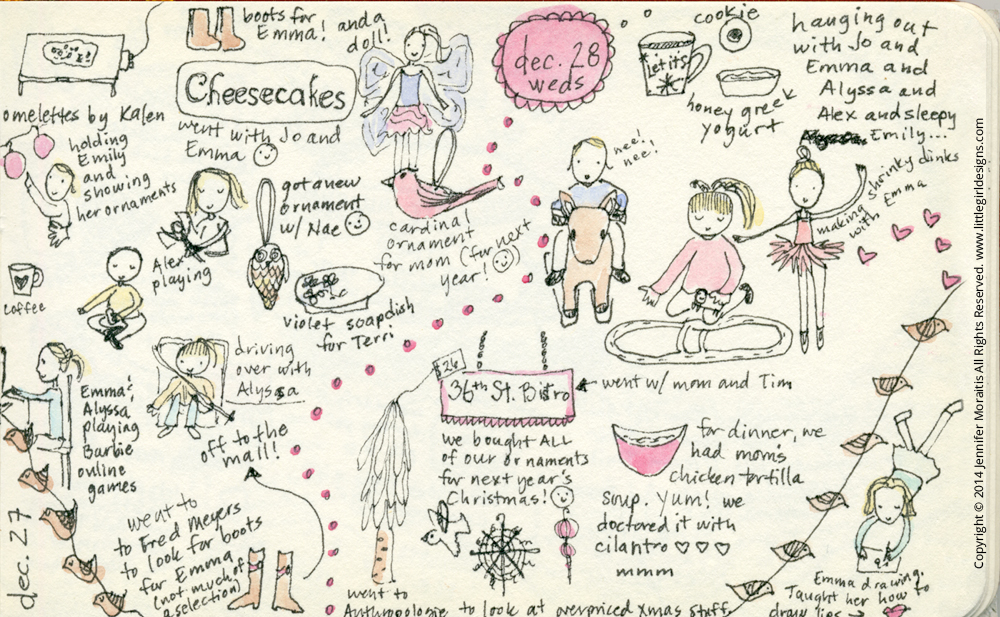 boots for
Emma!
and a
doll!
Cheesecakes
went with Jo and
Emma
omelettes by Kalen
holding
Emily
and
showing
her ornaments
Alex
playing
got a new
ornament
w/ Nae
cardinal
ornament
for mom (for next
year!
violet soapdish
for Terri
coffee
Emma &
Alyssa
playing
Barbie
online
games
driving
over with
Alyssa
off to the
mall!
went to
to Fred Meyers
to look for boots
for Emma
(not much of
a selection)
dec. 27
dec. 28
weds
let it s
cookie
honey greek
yogurt
hanging out
with Jo and
Emma and
Alyssa and
Alex and sleepy
Emily...
nee!
nee!
making shrinky dinks
with Emma
$26
36th St. Bistro
went w/ mom and Tim
we bought ALL
of our ornaments
for next year's
Christmas!
for dinner, we
had mom's
chicken tortilla
soup. Yum! we
doctored it with
cilantro
mmm
went to
Anthropologie to look at overpriced Xmas stuff
Emma drawing.
Taught her how to
draw lips
Copyright © 2014 Jennifer Moraitis All Rights Reserved. www.littlegirldesigns.com